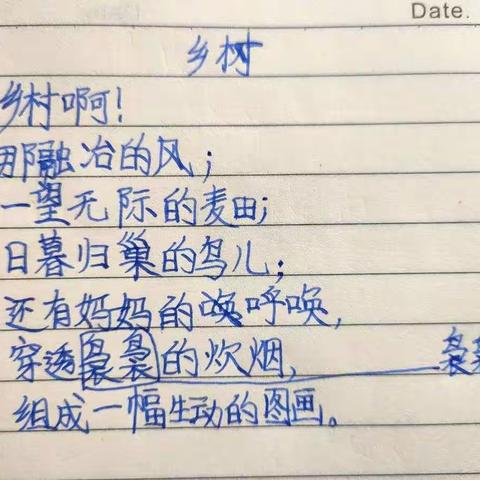 Date.
乡村
乡村啊!
那融冶的风;
一望无际的麦田;
日暮归巢的鸟儿;
还有妈妈的呼唤,
穿透袅袅的炊烟,
组成一幅生动的图画。